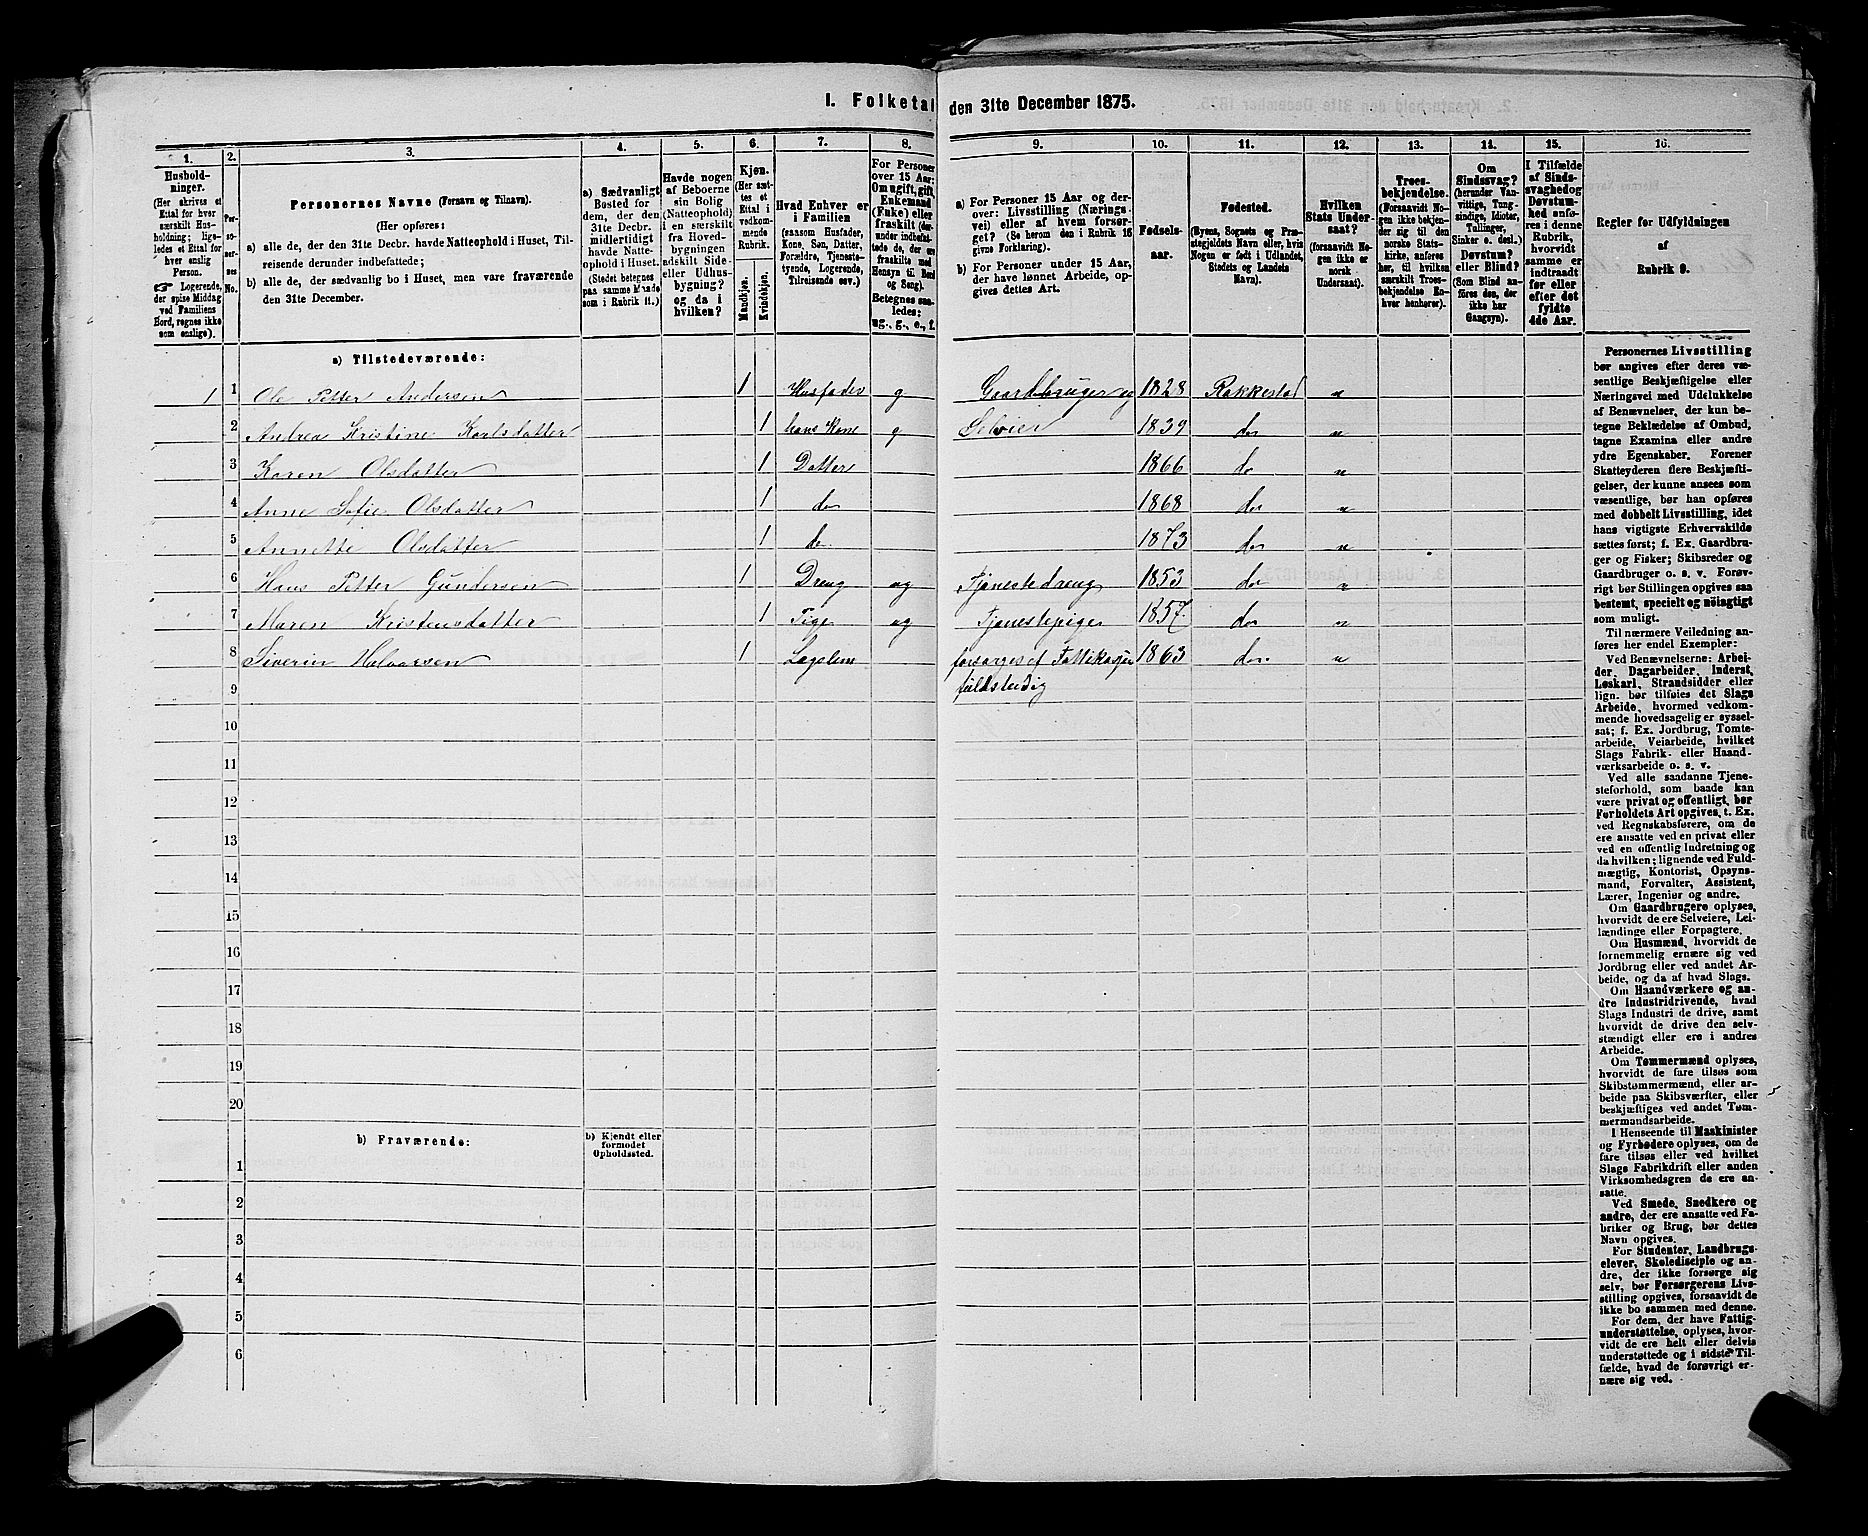 1. Folketal
den 31te December 1875.
1.
2.
3.
4.
5.
6.
7.
8.
9.
10.
11.
12.
13.
14.
15.
16.
Husholdninger.
(Her skrives et
Ettal for hver
særskilt Husholdning;
ligeledes et Ettal for
hver enslig
Person.
Logerende,
der spise Middag
ved Familiens
Bord, regnes ikke
som enslige).
Personernes
No.
Personernes Navne (Fornavn og Tilnavn).
(Her opføres:
a) alle de, der den 31te Decbr. havde Natteophold i Huset, Tilreisende
derunder indbefattede;
b) alle de, der sædvanlig bo i Huset, men vare fraværende
den 31te December.
a) Sædvanligt
Bosted for
dem, der den
31te Decbr.
midlertidigt
havde Natteophold
i Huset.
(Stedet betegnes
paa samme Maade
som i Rubrik 11.)
Havde nogen
af Beboerne
sin Bolig
(Natteophold)
i en særskilt
fra Hovedbygningen
adskilt Side-
eller Udhusbygning?
og da i
hvilken?
Kjøn.
(Her sættes
et
Ettal i
vedkommende
Rubrik.
Mandkjøn.
Kvindekjøn.
Hvad Enhver er
i Familien
(saasom Husfader,
Kone, Søn, Datter,
Forældre, Tjenestetyende,
Logerende,
Tilreisende osv.)
For Personer
over 15 Aar:
Om ugift, gift,
Enkemand
(Enke) eller
fraskilt (derunder
indbefattede
de, der ere
fraskilte med
Hensyn til Bord
og Seng).
Betegnes saaledes:
ug., g., e., f.
a) For Personer 15 Aar og derover:
Livsstilling (Næringsvei)
eller af hvem forsørget?
(Se herom den i Rubrik 16
givne Forklaring).
b) For Personer under 15 Aar,
der have lønnet Arbeide, opgives
dettes Art.
Fødselsaar.
Fødested.
(Byens, Sognets og Præstegjeldets
Navn eller, hvis
Nogen er født i Udlandet,
Stedets og Landets
Navn).
Hvilken
Stats Undersaat?
(forsaavidt Nogen
ikke er
norsk
Undersaat).
Troesbekjendelse.
(Forsaavidt Nogen
ikke bekjender
sig til den
norske Statskirke,
anføres
her, til hvilken
særskilt Troesbekjendelse
Enhver
henhører).
Om
Sindssvag?
(herunder Vanvittige,
Tungsindige,
Idioter,
Tullinger,
Sinker o. desl.)
Døvstum?
eller Blind?
(Som Blind anføres
den, der
ikke har
Gangsyn).
I Tilfælde
af Sindssvaghed
og
Døvstumhed
anføres
i denne
Rubrik,
hvorvidt
samme er
indtraadt
før eller
efter det
fyldte
4de Aar.
Regler for Udfyldningen
af
Rubrik 9.
a) Tilstedeværende:
1 1 Ole Petter Andersen 1 Husfader g Gaardbruger og 1828 Rakkestad n
2 Andrea Kristine Karlsdatter 1 hans Kone g Selveier 1839 do n
3 Karen Olsdatter 1 Datter 1866 do n
4 Anne Sofie Olsdatter 1 do 1868 do n
5 Annette Olsdatter 1 do 1873 do n
6 Hans Petter Gundersen 1 Dreng ug Tjenestedreng 1853 do n
7 Maren Kristensdatter 1 Pige ug Tjenestepige 1857. do n
8 Siverin Halvorsen 1 Lægslem forsørges af Fattikasjen 1863 do n
9 fuldstendig
10
11
12
13
14
15
16
17
18
19
20
b) Fraværende:
b) Kjendt eller
formodet
Opholdssted.
1
2
3
4
5
6
Personernes Livsstilling
bør angives efter deres væsentlige
Beskjæftigelse eller
Næringsvei med Udelukkelse
af Benævnelser, der kun betegne
Beklædelse af Ombud,
tagne Examina eller andre
ydre Egenskaber. Forener
Skatteyderen flere Beskjæftigelser,
der kunne ansees som
væsentlige, bør han opføres
med dobbelt Livsstilling, idet
hans vigtigste Erhvervskilde
sættes først; f. Ex. Gaardbruger
og Fisker; Skibsreder og
Gaardbruger o. s. v. Forøvrigt
bør Stillingen opgives saa
bestemt, specielt og nøiagtigt
som muligt.
Til nærmere Veiledning anføres
her endel Exempler:
Ved Benævnelserne: Arbeider,
Dagarbeider, Inderst,
Løskarl, Strandsidder eller
lign. bør tilføies det Slags
Arbeide, hvormed vedkommende
hovedsagelig er sysselsat;
f. Ex. Jordbrug, Tomtearbeide,
Veiarbeide, hvilket
Slags Fabrik- eller Haandværksarbeide
o. s. v.
Ved alle saadanne Tjenesteforhold,
som baade kan
være privat og offentligt, bør
Forholdets Art opgives, t. Ex.
ved Regnskabsførere, om de
ere ansatte ved en privat eller
ved en offentlig Indretning og
da hvilken; lignende ved Fuldmægtig,
Kontorist, Opsynsmand,
Forvalter, Assistent,
Lærer, Ingeniør og andre.
Om Gaardbrugere oplyses,
hvorvidt de ere Selveiere, Leilændinge
eller Forpagtere.
Om Husmænd, hvorvidt de
fornemmelig ernære sig ved
Jordbrug eller ved andet Arbeide,
og da af hvad Slags.
Om Haandværkere og andre
Industridrivende, hvad
Slags Industri de drive, samt
hvorvidt de drive den selvstændigt
eller ere i andres
Arbeide.
Om Tømmermænd oplyses,
hvorvidt de fare tilsøs som
Skibstømmermænd, eller arbeide
paa Skibsværfter, eller
beskjæftiges ved andet Tømmermandsarbeide.
I Henseende til Maskinister
og Fyrbødere oplyses, om de
fare tilsøs eller ved hvilket
Slags Fabrikdrift eller anden
Virksomhedsgren de ere ansatte.
Ved Smede, Snedkere og
andre, der ere ansatte ved Fabriker
og Brug, bør dettes
Navn opgives.
For Studenter, Landbrugselever,
Skoledisciple og andre,
der ikke forsørge sig
selv, bør Forsørgerens Livsstilling
opgives, forsaavidt de
ikke bo sammen med denne.
For dem, der have Fattigunderstøttelse,
oplyses, hvorvidt
de ere helt eller delvis
understøttede og i sidste Tilfælde,
hvad de forøvrigt ernære
sig ved.